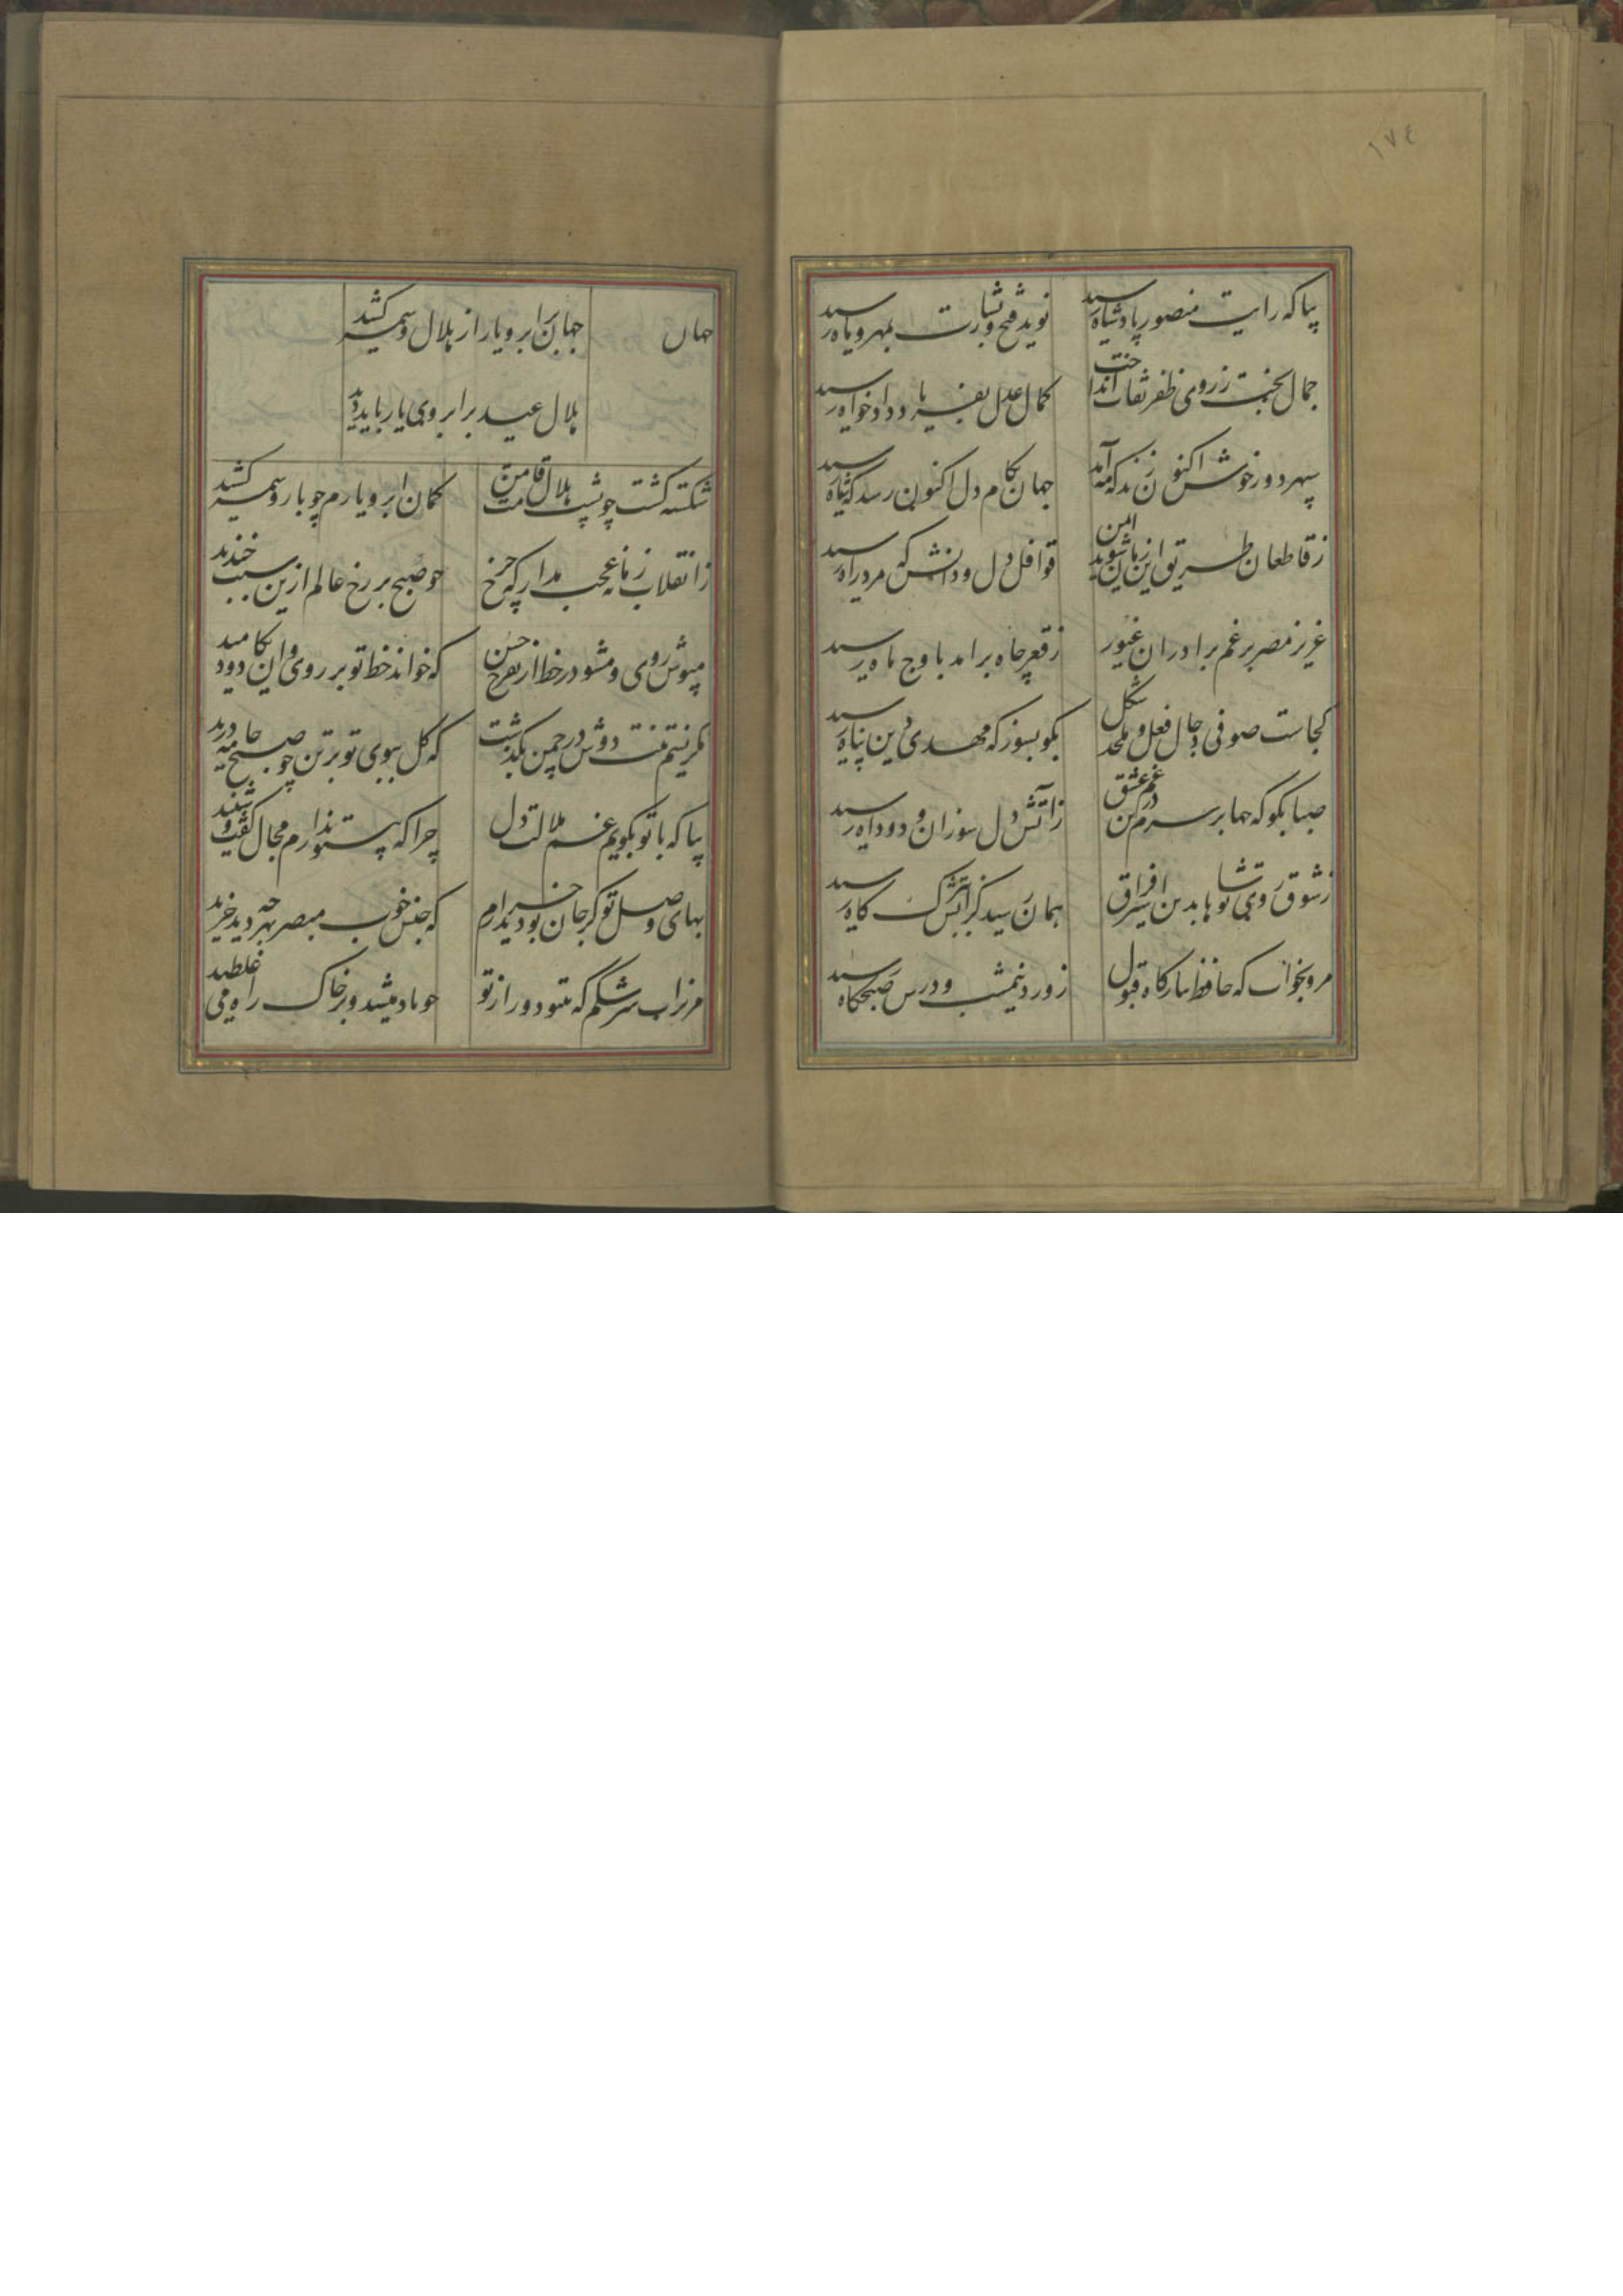 ١٧٤
بیا که رایت منصور پادشاه رسید نوید فتح و بشارت بمهر و ماه رسید
جمال بخت ز روی ظفر نقاب انداخت کمال عدل بفریاد دادخواه رسید
سپهر دور خوش اکنون زند که ماه آمد جهان بکام دل اکنون رسد که شاه رسید
ز قاطعان طریق این زمان شوند ایمن قوافل دل و دانش که مرد راه رسید
عزیز مصر برغم برادران غیور ز قعر چاه برامد باوج ماه رسید
کجاست صوفی دجال فعل و ملحد شکل بکو بسوز که مهدی دین پناه رسید
صبا بکو که چها بر سرم درین غم عشق ز آتش دل سوزان و دود اه رسید
ز شوق روی تو شاها بدین اسیر فراق همان رسید کز آتش ببرک کاه رسید
مرو بخواب که حافظ ببارکاه قبول ز ورد نیمشب و درس صبحکاه رسید
جهان
جهان بر ابروی یار از هلال وسمه کشید
هلال عید بر ابروی یار باید دید
شکسته کشت چو پشت هلال قامت من کمان ابروی یارم چو بار وسمه کشید
ز انقلاب زمانه عجب مدار که چرخ چو صبح بر رخ عالم ازین سبب خندید
مپوش روی و مشو در خط از تفرج حسن که خواند خط تو بر روی وان یکاد دمید
مکر نسیم تنت دوش در چمن بکذشت که کل ببوی تو بر تن چو صبح جامه درید
بیا که با تو بکویم غم ملالت دل چرا که بی تو ندارم مجال کفت و شنید
بهای وصل تو کر جان بود خریدارم که جنس خوب مبصر بهر چه دید خرید
مریز اب سرشکم که بیتو دور از تو چو باد میشد و بر خاک راه می غلطید